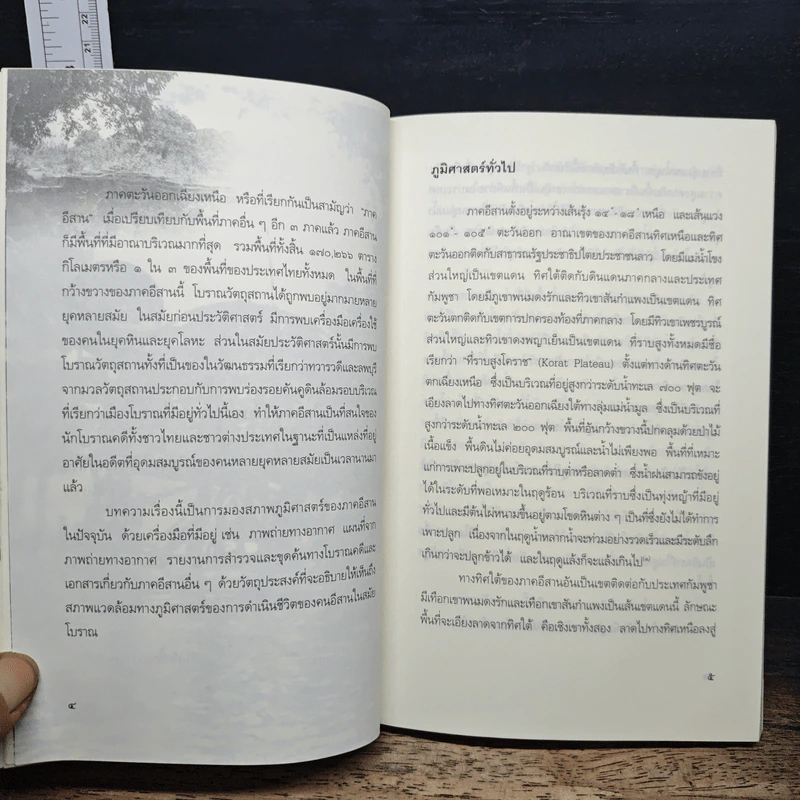 ภาคตะวันออกเฉียงเหนือ หรือที่เรียกกันเป็นสามัญว่า "ภาค
อีสาน" เมื่อเปรียบเทียบกับพื้นที่ภาคอื่น ๆ อีก ๓ ภาคแล้ว ภาคอีสาน
ก็มีพื้นที่ที่มีอาณาบริเวณมากที่สุด รวมพื้นที่ทั้งสิ้น ๑๗๐,๒๒๖ ตาราง
กิโลเมตรหรือ ๑ ใน ๓ ของพื้นที่ของประเทศไทยทั้งหมด ในพื้นที่ที่
กว้างขวางของภาคอีสานนี้ โบราณวัตถุสถานได้ถูกพบอยู่มากมายหลาย
ยุคหลายสมัย ในสมัยก่อนประวัติศาสตร์ มีการพบเครื่องมือเครื่องใช้
ของคนในยุคหินและยุคโลหะ ส่วนในสมัยประวัติศาสตร์นั้นมีการพบ
โบราณวัตถุสถานทั้งที่เป็นของในวัฒนธรรมที่เรียกว่าทวารวดีและลพบุรี
จากมวลวัตถุสถานประกอบกับการพบร่องรอยคันคูดินล้อมรอบบริเวณ
ที่เรียกว่าเมืองโบราณที่มีอยู่ทั่วไปนี้เอง ทำให้ภาคอีสานเป็นที่สนใจของ
นักโบราณคดีทั้งชาวไทยและชาวต่างประเทศในฐานะที่เป็นแหล่งที่อยู่
อาศัยในอดีตที่อุดมสมบูรณ์ของคนหลายยุคหลายสมัยเป็นเวลานานมา
แล้ว
บทความเรื่องนี้เป็นการมองสภาพภูมิศาสตร์ของภาคอีสาน
ในปัจจุบัน ด้วยเครื่องมือที่มีอยู่ เช่น ภาพถ่ายทางอากาศ แผนที่จาก
ภาพถ่ายทางอากาศ รายงานการสำรวจและขุดค้นทางโบราณคดีและ
เอกสารเกี่ยวกับภาคอีสานอื่น ๆ ด้วยวัตถุประสงค์ที่จะอธิบายให้เห็นถึง
สภาพแวดล้อมทางภูมิศาสตร์ของการดำเนินชีวิตของคนอีสานในสมัย
โบราณ
๔
ภูมิศาสตร์ทั่วไป
ภาคอีสานตั้งอยู่ระหว่างเส้นรุ้ง ๑๔°-๑๘° เหนือ และเส้นแวง
๑๐๑°-๑๐๕° ตะวันออก อาณาเขตของภาคอีสานทิศเหนือและทิศ
ตะวันออกติดกับสาธารณรัฐประชาธิปไตยประชาชนลาว โดยมีแม่น้ำโขง
ส่วนใหญ่เป็นเขตแดน ทิศใต้ติดกับดินแดนภาคกลางและประเทศ
กัมพูชา โดยมีภูเขาพนมดงรักและทิวเขาสันกำแพงเป็นเขตแดน ทิศ
ตะวันตกติดกับเขตการปกครองท้องที่ภาคกลาง โดยมีทิวเขาเพชรบูรณ์
ส่วนใหญ่และทิวเขาดงพญาเย็นเป็นเขตแดน ที่ราบสูงทั้งหมดมีชื่อ
เรียกว่า "ที่ราบสูงโคราช" (Korat Plateau) ตั้งแต่ทางด้านทิศตะวัน
ตกเฉียงเหนือ ซึ่งเป็นบริเวณที่อยู่สูงกว่าระดับน้ำทะเล ๗๐๐ ฟุต จะ
เอียงลาดไปทางทิศตะวันออกเฉียงใต้ทางลุ่มแม่น้ำมูล ซึ่งเป็นบริเวณที่
สูงกว่าระดับน้ำทะเล ๒๐๐ ฟุต พื้นที่อันกว้างขวางนี้ปกคลุมด้วยป่าไม้
เนื้อแข็ง พื้นดินไม่ค่อยอุดมสมบูรณ์และน้ำไม่เพียงพอ พื้นที่ที่เหมาะ
แก่การเพาะปลูกอยู่ในบริเวณที่ราบต่ำหรือลาดต่ำ ซึ่งน้ำฝนสามารถขังอยู่
ได้ในระดับที่พอเหมาะในฤดูร้อน บริเวณที่ราบซึ่งเป็นทุ่งหญ้าที่มีอยู่
ทั่วไปและมีต้นไผ่หนามขึ้นอยู่ตามโขดหินต่าง ๆ เป็นที่ซึ่งยังไม่ได้ทำการ
เพาะปลูก เนื่องจากในฤดูน้ำหลากน้ำจะท่วมอย่างรวดเร็วและมีระดับลึก
เกินกว่าจะปลูกข้าวได้ และในฤดูแล้งก็จะแล้งเกินไป
ทางทิศใต้ของภาคอีสานอันเป็นเขตติดต่อกับประเทศกัมพูชา
มีเทือกเขาพนมดงรักและเทือกเขาสันกำแพงเป็นเส้นเขตแดนนี้ ลักษณะ
พื้นที่จะเอียงลาดจากทิศใต้ คือเชิงเขาทั้งสอง ลาดไปทางทิศเหนือลงสู่
๕
21
22